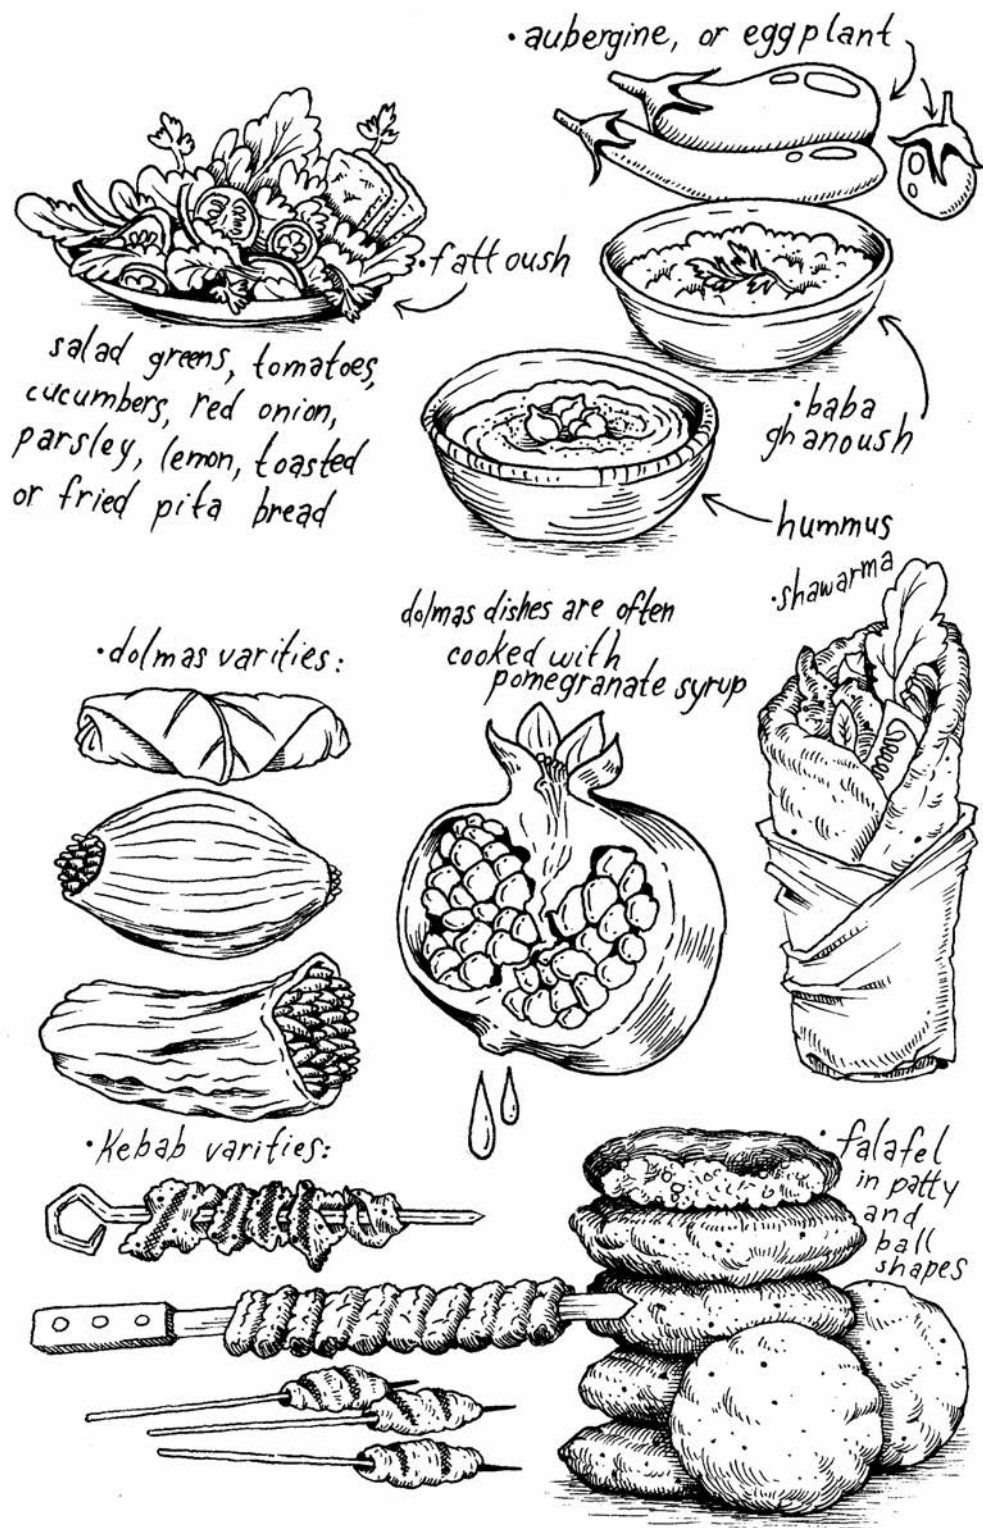 ·aubergine, or eggplant
·fattoush
salad greens, tomatoes,
cucumbers, red onion,
parsley, lemon, toasted
or fried pita bread
·baba
ghanoush
hummus
·shawarma
dolmas dishes are often
cooked with
pomegranate syrup
·dolmas varities:
·Kebab varities:
·falafel
in patty
and
ball
shapes